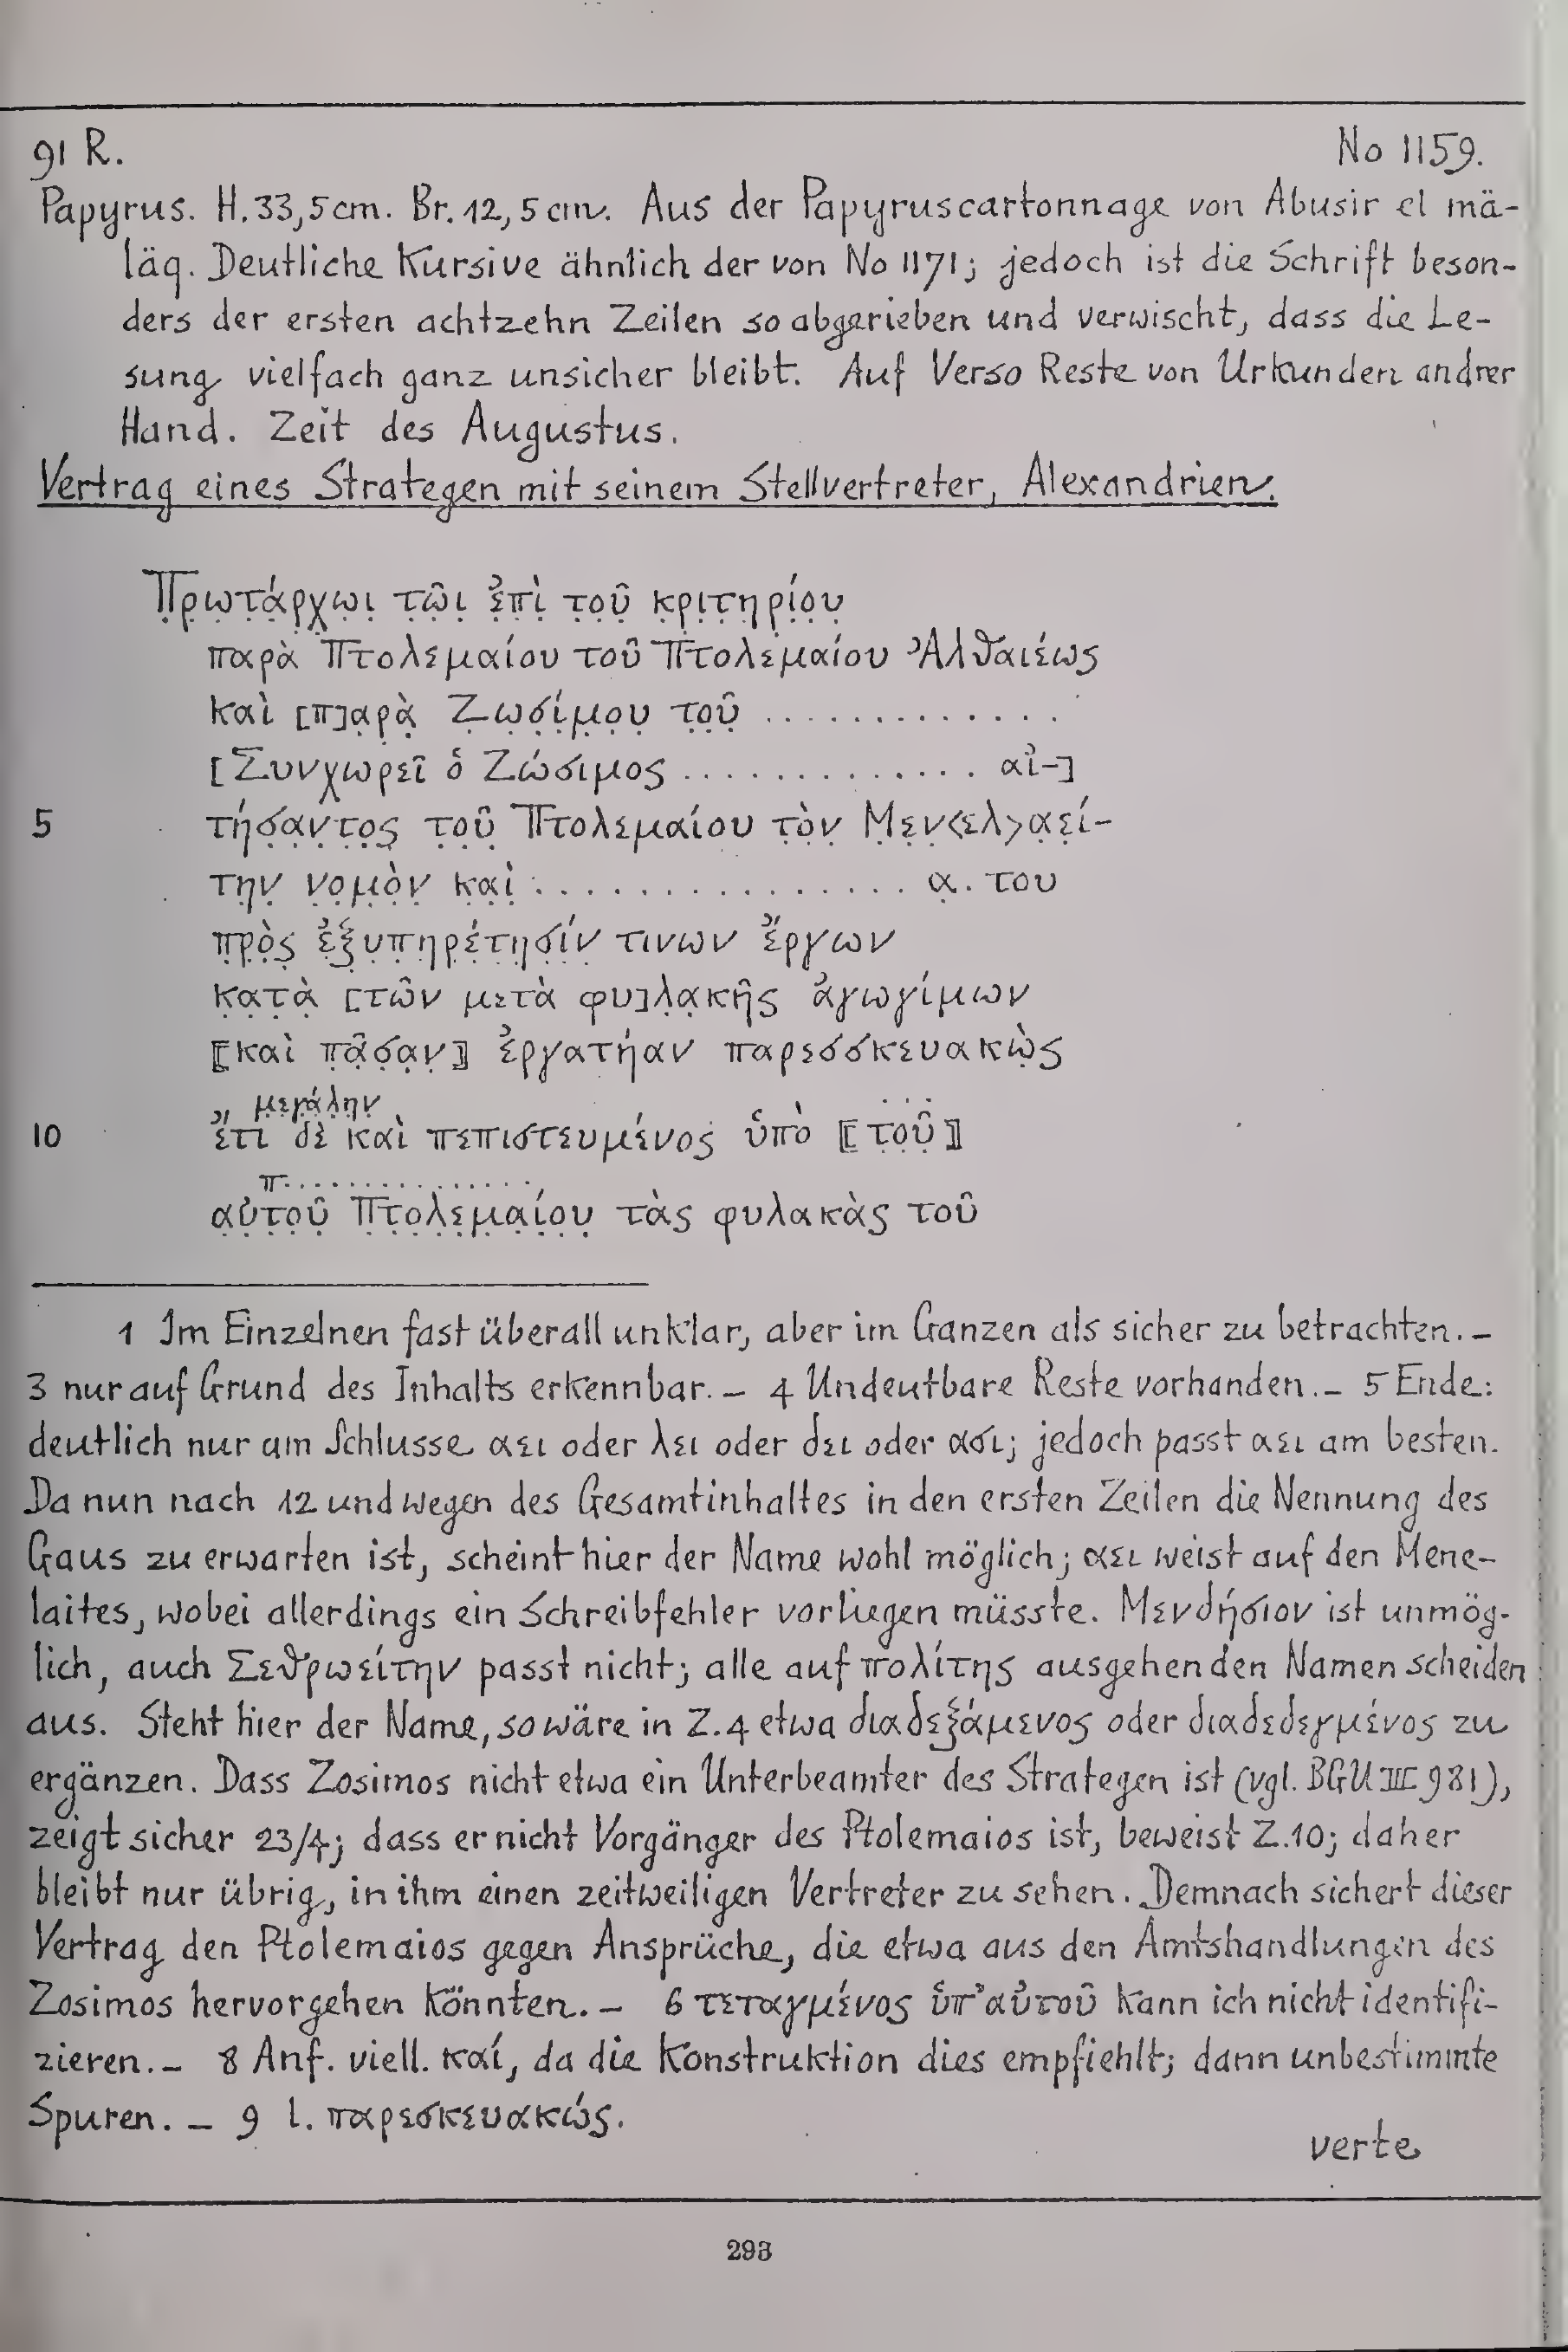 91 R. No 1159.
Papyrus. H. 33,5 cm. Br. 12,5 cm. Aus der Papyruscartonnage von Abusir el mä-
läq. Deutliche Kursive ähnlich der von No 1171; jedoch ist die Schrift beson-
ders der ersten achtzehn Zeilen so abgerieben und verwischt, dass die Le-
sung vielfach ganz unsicher bleibt. Auf Verso Reste von Urkunden andrer
Hand. Zeit des Augustus.
Vertrag eines Strategen mit seinem Stellvertreter, Alexandrien.
Π̣ρ̣ω̣τ̣ά̣ρ̣χ̣ω̣ι̣ τ̣ῶ̣ι̣ ἐ̣π̣ὶ̣ τ̣ο̣ῦ̣ κ̣ρ̣ι̣τ̣η̣ρ̣ί̣ο̣υ̣
παρὰ Πτολεμαίου τοῦ Πτολεμαίου Ἀλθαιέως
καὶ [π]α̣ρ̣ὰ̣ Ζ̣ω̣σ̣ί̣μ̣ο̣υ̣ τ̣ο̣ῦ̣ .............
[Συνχωρεῖ ὁ Ζώσιμος ............. αἰ-]
5 τήσ̣α̣ν̣τ̣ο̣ς̣ τ̣ο̣ῦ̣ Πτολεμαίου τ̣ὸ̣ν̣ Μ̣ε̣ν̣<ελ>α̣ε̣ί-
τη̣ν̣ ν̣ο̣μ̣ὸ̣ν̣ κ̣α̣ὶ̣ ................ α̣. του
π̣ρ̣ὸ̣ς̣ ἐ̣ξ̣υ̣π̣η̣ρ̣έ̣τ̣η̣σ̣ί̣ν̣ τινων ἔργων
κ̣α̣τ̣ὰ̣ [τῶν μετὰ φυ]λ̣α̣κῆς ἀγωγίμων
⟦καὶ π̣ᾶ̣σ̣α̣ν̣⟧ ἐργατήαν παρεσσκευακὼ̣ς
μ̣ε̣γ̣ά̣λ̣η̣ν̣
10 ἔτι δὲ καὶ πεπιστευμένος ὑπὸ ⟦τ̣ο̣ῦ̣⟧
π...............
α̣ὐ̣τ̣ο̣ῦ̣ Π̣τ̣ο̣λ̣ε̣μ̣α̣ί̣ο̣υ̣ τὰς φυλακὰς τοῦ
1 Im Einzelnen fast überall unklar, aber im Ganzen als sicher zu betrachten. –
3 nur auf Grund des Inhalts erkennbar. – 4 Undeutbare Reste vorhanden. – 5 Ende:
deutlich nur am Schlusse αει oder λει oder δει oder ασι; jedoch passt αει am besten.
Da nun nach 12 und wegen des Gesamtinhaltes in den ersten Zeilen die Nennung des
Gaus zu erwarten ist, scheint hier der Name wohl möglich; αει weist auf den Mene-
laites, wobei allerdings ein Schreibfehler vorliegen müsste. Μενδήσιον ist unmög-
lich, auch Σεθρωείτην passt nicht; alle auf πολίτης ausgehenden Namen scheiden
aus. Steht hier der Name, so wäre in Z. 4 etwa διαδεξάμενος oder διαδεδεγμένος zu
ergänzen. Dass Zosimos nicht etwa ein Unterbeamter des Strategen ist (vgl. BGU III 981),
zeigt sicher 23/4; dass er nicht Vorgänger des Ptolemaios ist, beweist Z. 10; daher
bleibt nur übrig, in ihm einen zeitweiligen Vertreter zu sehen. Demnach sichert dieser
Vertrag den Ptolemaios gegen Ansprüche, die etwa aus den Amtshandlungen des
Zosimos hervorgehen könnten. – 6 τεταγμένος ὑπ' αὐτοῦ kann ich nicht identifi-
zieren. – 8 Anf. viell. καί, da die Konstruktion dies empfiehlt; dann unbestimmte
Spuren. – 9 l. παρεσκευακώς.
verte
293